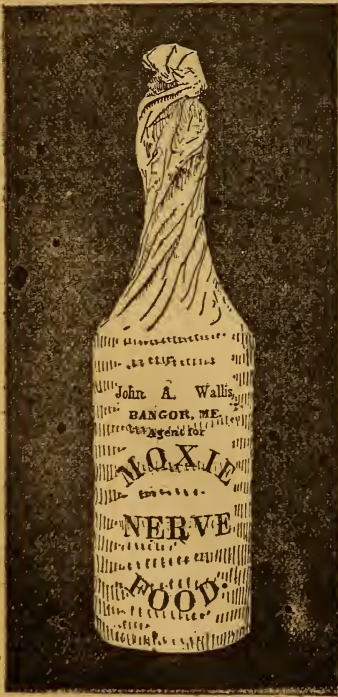 John A. Wallis,
BANGOR, ME.
Agent for
MOXIE
NERVE
FOOD.